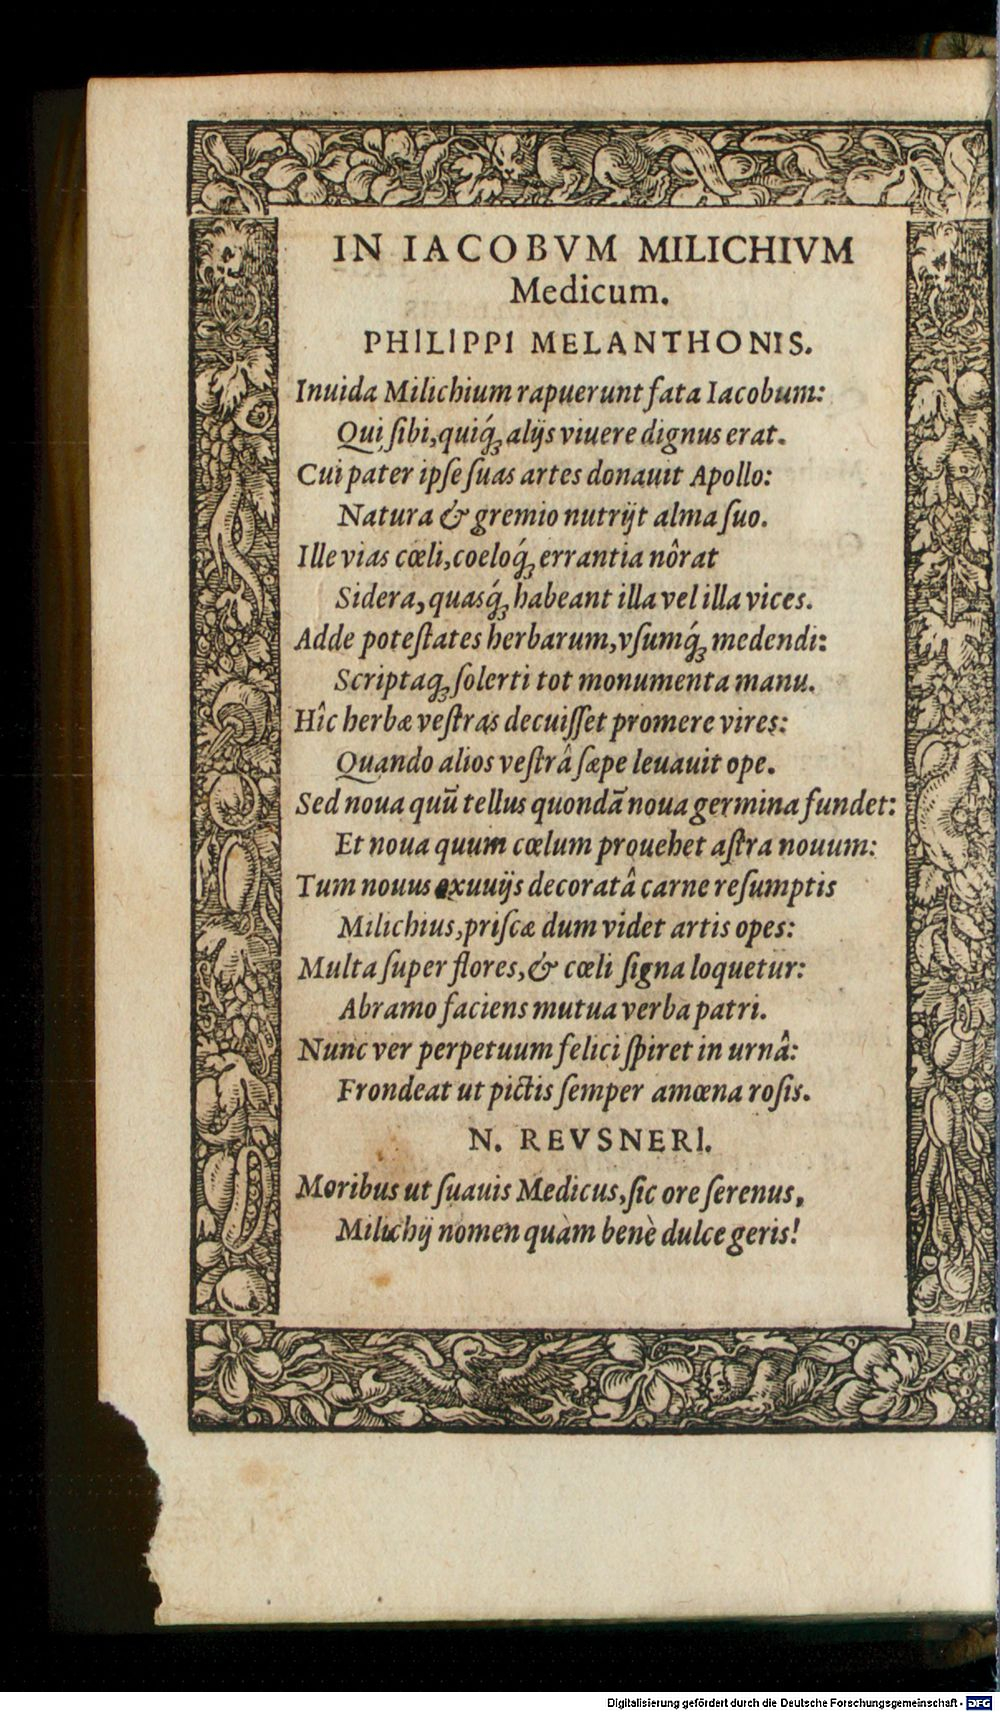 IN IACOBVM MILICHIVM
Medicum.
PHILIPPI MELANTHONIS.
Inuida Milichium rapuerunt fata Iacobum:
Qui ſibi, quiq́ꝫ alijs viuere dignus erat.
Cui pater ipſe ſuas artes donauit Apollo:
Natura & gremio nutrijt alma ſuo.
Ille vias cœli, coeloq́ꝫ errantia nôrat
Sidera, quasq́ꝫ habeant illa vel illa vices.
Adde poteſtates herbarum, vſumq́ꝫ medendi:
Scriptaqꝫ ſolerti tot monumenta manu.
Hîc herbæ veſtras decuiſſet promere vires:
Quando alios veſtrâ ſæpe leuauit ope.
Sed noua quū tellus quondā noua germina fundet:
Et noua quum cœlum prouehet aſtra nouum:
Tum nouus exuuijs decoratâ carne reſumptis
Milichius, priſcæ dum videt artis opes:
Multa ſuper flores, & cœli ſigna loquetur:
Abramo faciens mutua verba patri.
Nunc ver perpetuum felici ſpiret in urnâ:
Frondeat ut pictis ſemper amœna roſis.
N. REVSNERI.
Moribus ut ſuauis Medicus, ſic ore ſerenus,
Milichij nomen quàm benè dulce geris!
Digitalisierung gefördert durch die Deutsche Forschungsgemeinschaft - DFG